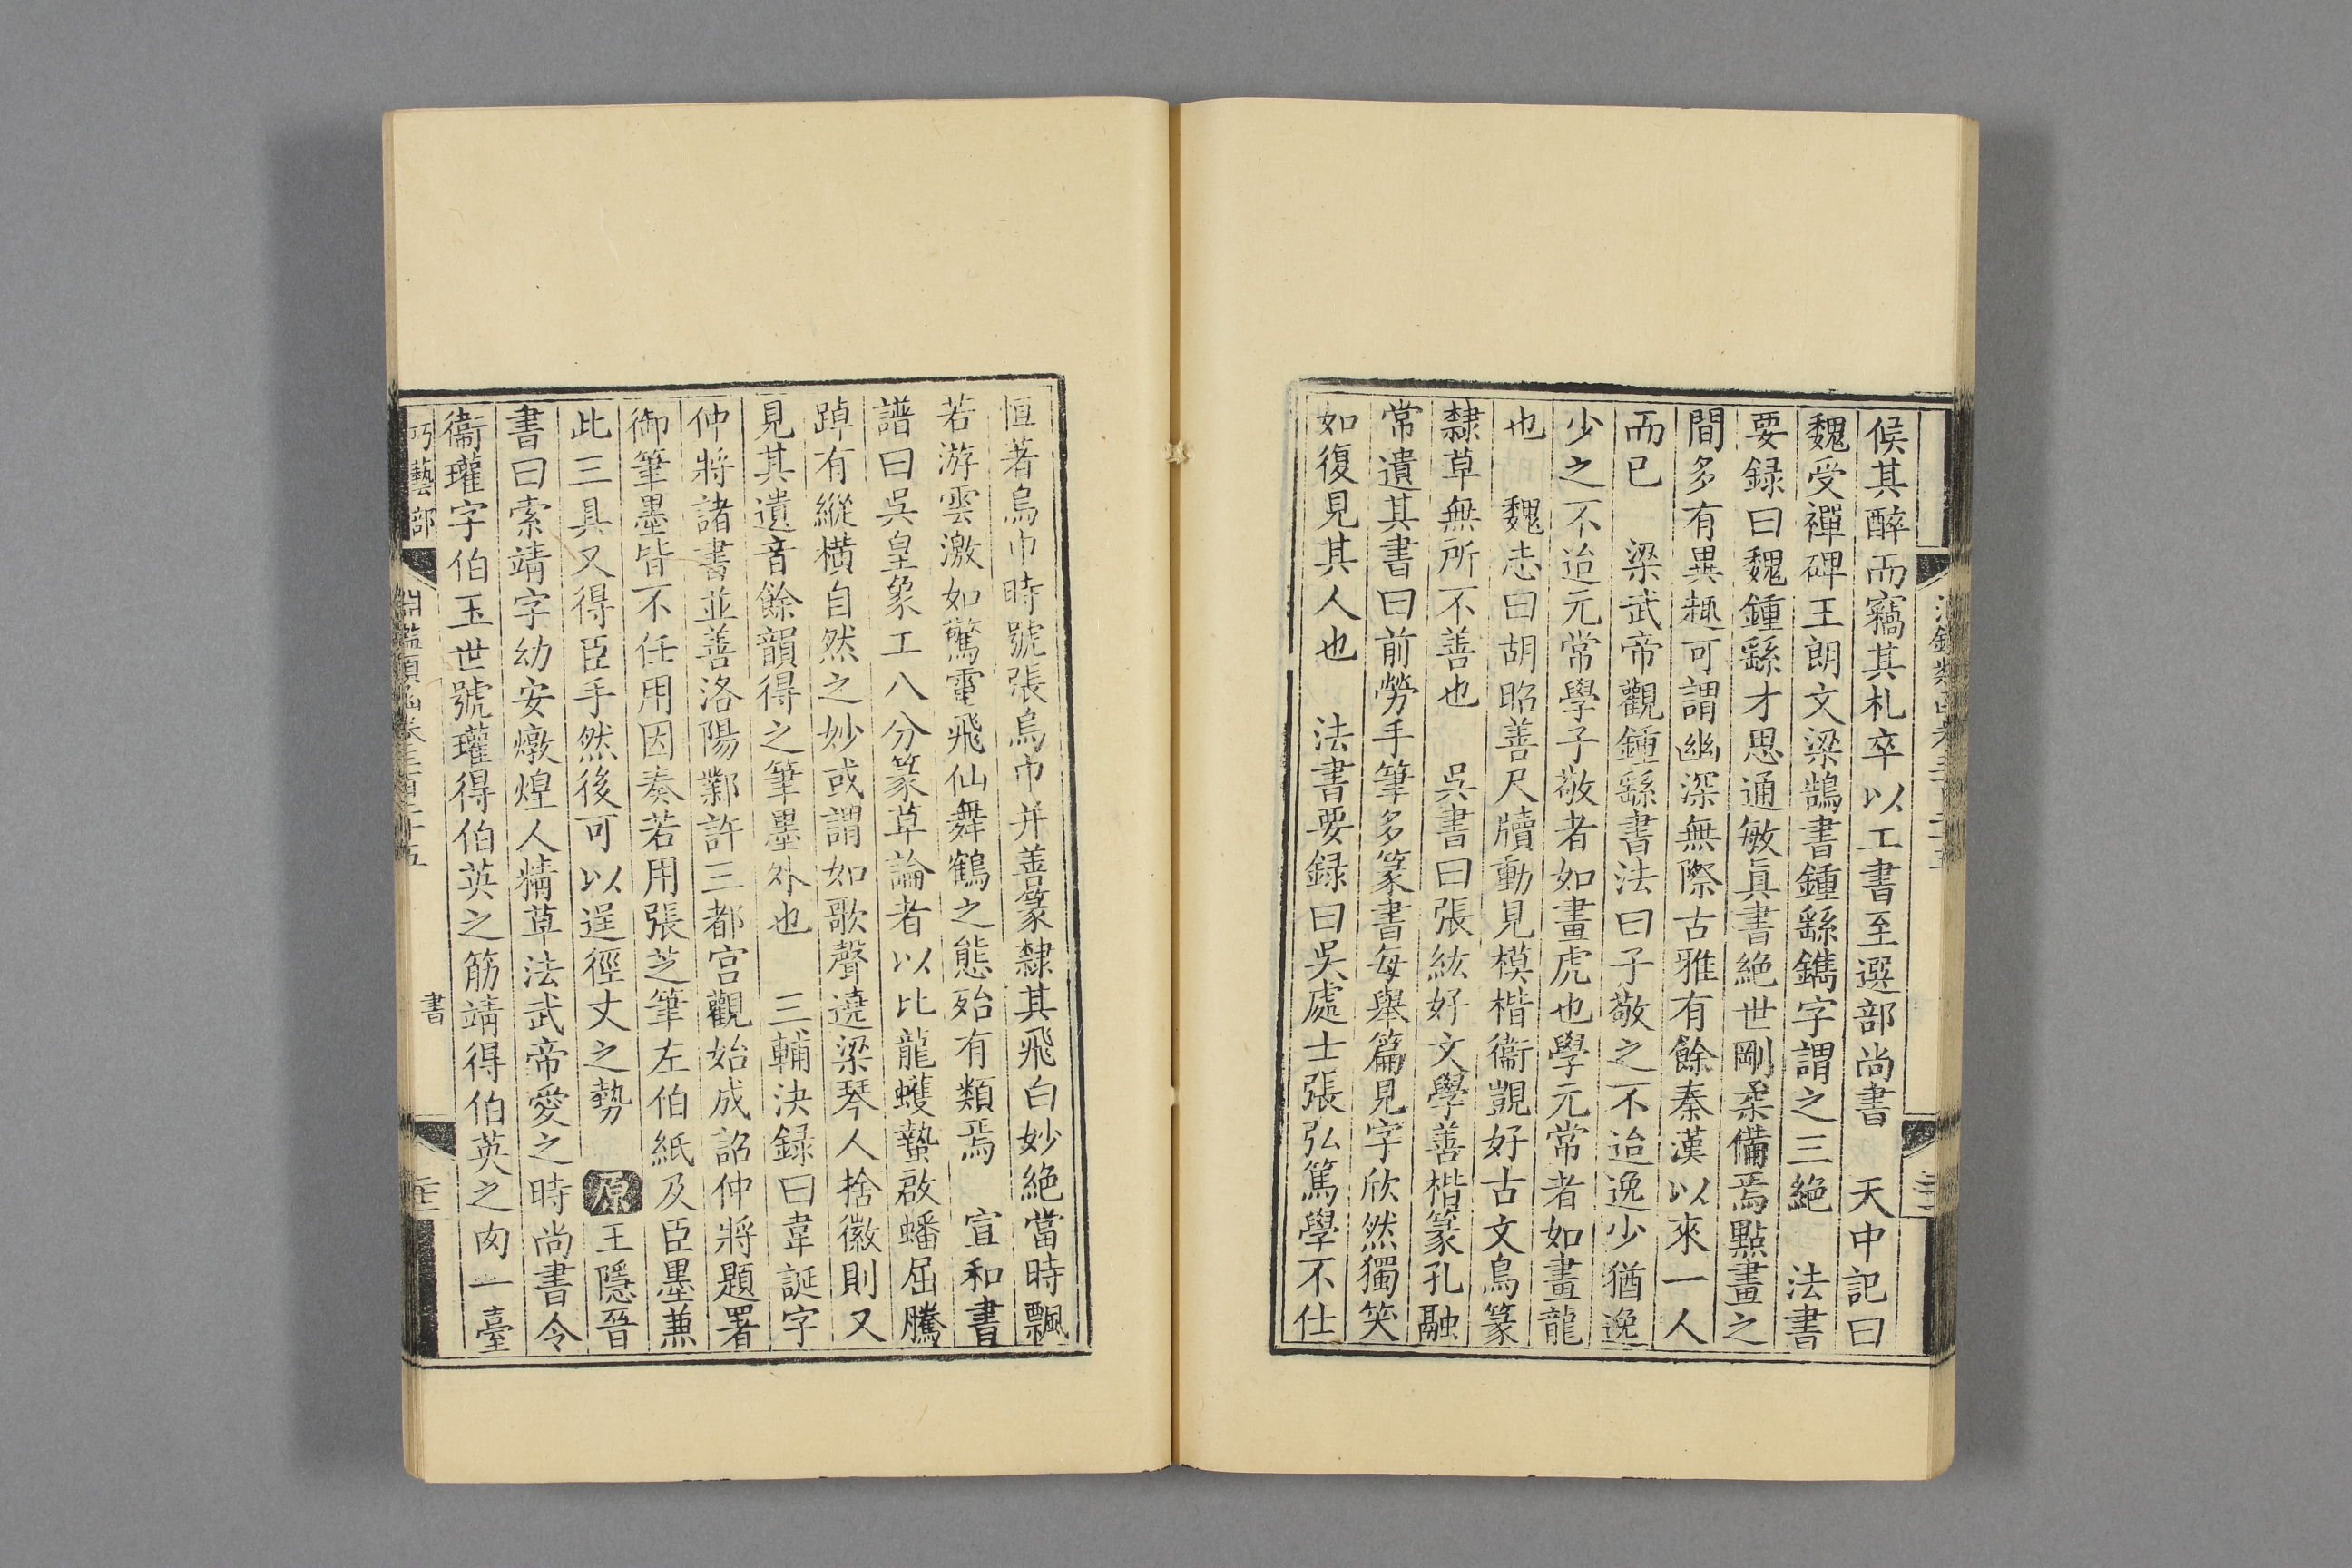 候其醉而竊其札卒以工書至選部尚書　天中記曰
魏受禪碑王朗文梁鵠書鍾繇鐫字謂之三絕　法書
要録曰魏鍾繇才思通敏眞書絕世剛柔備焉點畫之
間多有異趣可謂幽深無際古雅有餘秦漢以來一人
而已　梁武帝觀鍾繇書法曰子敬之不迨逸少猶逸
少之不迨元常學子敬者如畫虎也學元常者如畫龍
也　魏志曰胡昭善尺牘動見模楷衞覬好古文鳥篆
隸草無所不善也　吳書曰張紘好文學善楷篆孔融
常遺其書曰前勞手筆多篆書每舉篇見字欣然獨笑
如復見其人也　法書要録曰吳處士張弘篤學不仕
恒著烏巾時號張烏巾并善篆隸其飛白妙絕當時飄
若游雲激如驚電飛仙舞鶴之態殆有類焉　宣和書
譜曰吳皇象工八分篆草論者以比龍蠖蟄啟蟠屈騰
踔有縱橫自然之妙或謂如歌聲遶梁琴人捨徽則又
見其遺音餘韻得之筆墨外也　三輔決録曰韋誕字
仲將諸書並善洛陽鄴許三都宮觀始成詔仲將題署
御筆墨皆不任用因奏若用張芝筆左伯紙及臣墨兼
此三具又得臣手然後可以逞徑丈之勢　原王隱晉
書曰索靖字幼安燉煌人精草法武帝愛之時尚書令
衞瓘字伯玉世號瓘得伯英之筋靖得伯英之肉一臺
巧藝部　淵鑑類函卷三百二十五　書